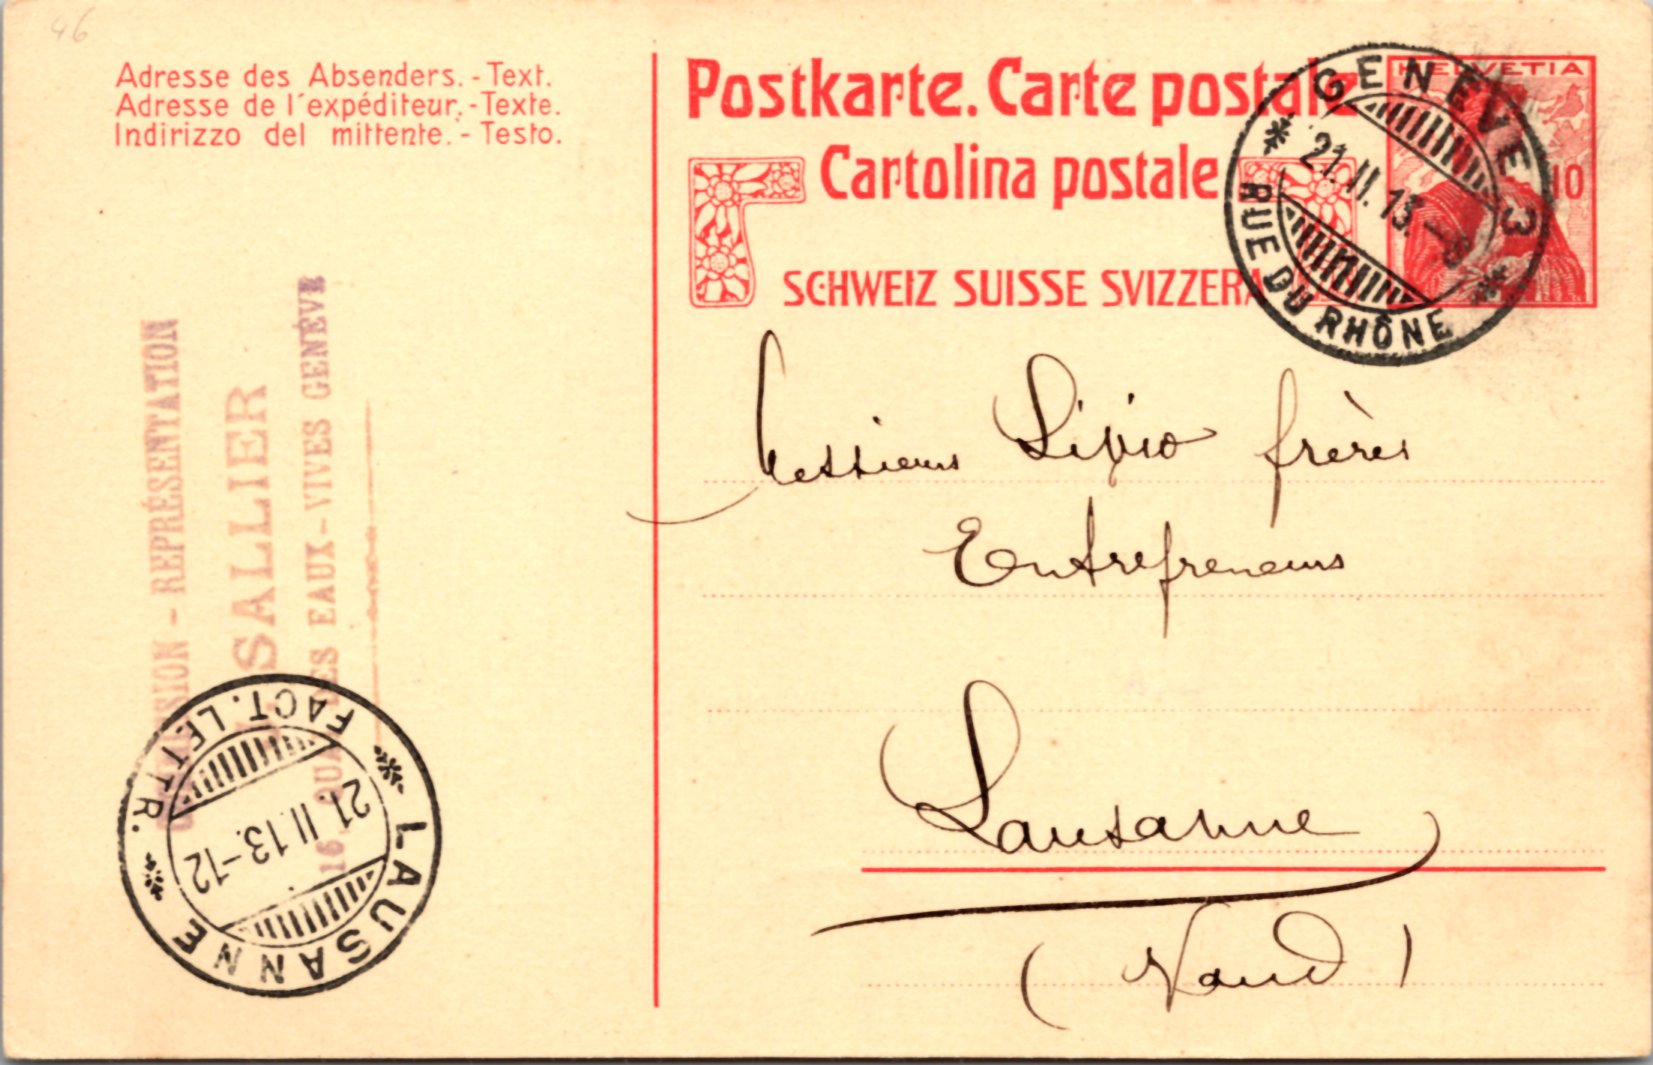 46
Adresse des Absenders. - Text.
Adresse de l'expéditeur. - Texte.
Indirizzo del mittente. - Testo.
Postkarte. Carte postale
Cartolina postale
SCHWEIZ SUISSE SVIZZERA
HELVETIA
10
GENÈVE 3
21. II. 13. – 8
RUE DU RHÔNE
Messieurs Livio frères
Entrepreneurs
Lausanne
(Vaud)
- REPRÉSENTATION
SALLIER
16, QUAI DES EAUX-VIVES GENÈVE
LAUSANNE
21. II. 13. – 12
FACT. LETTR.